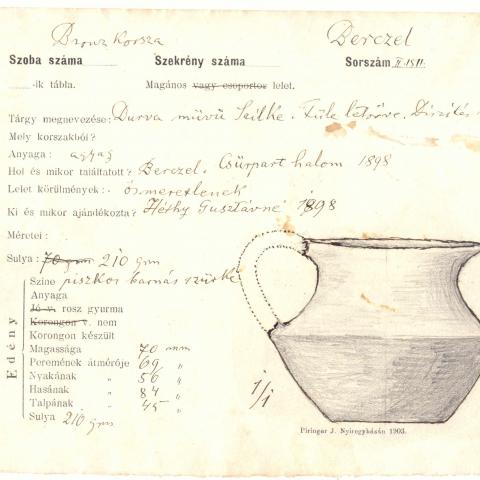 Bronz Korsza
Berczel
Szoba száma
Szekrény száma
Sorszám II. 1511.
-ik tábla.
Magános vagy csoportor lelet.
Tárgy megnevezése: Durva művű Szilke. Füle letörve. Diszítés
Mely korszakból?
Anyaga: agyag
Hol és mikor találtatott? Berczel. Csürpart halom 1898
Lelet körülmények: ösmeretlenek
Ki és mikor ajándékozta? Héthy Gusztávné 1898
Méretei:
Sulya: 70 grm 210 grm
Edény
Szine piszkos barnás szürke
Anyaga
Jó v. rosz gyurma
Korongon v. nem
Korongon készült
Magassága 70 mm
Peremének átmérője 69 "
Nyakának " 56 "
Hasának " 84 "
Talpának " 45 "
Sulya 210 grm
1/1
Piringer J. Nyiregyházán 1903.